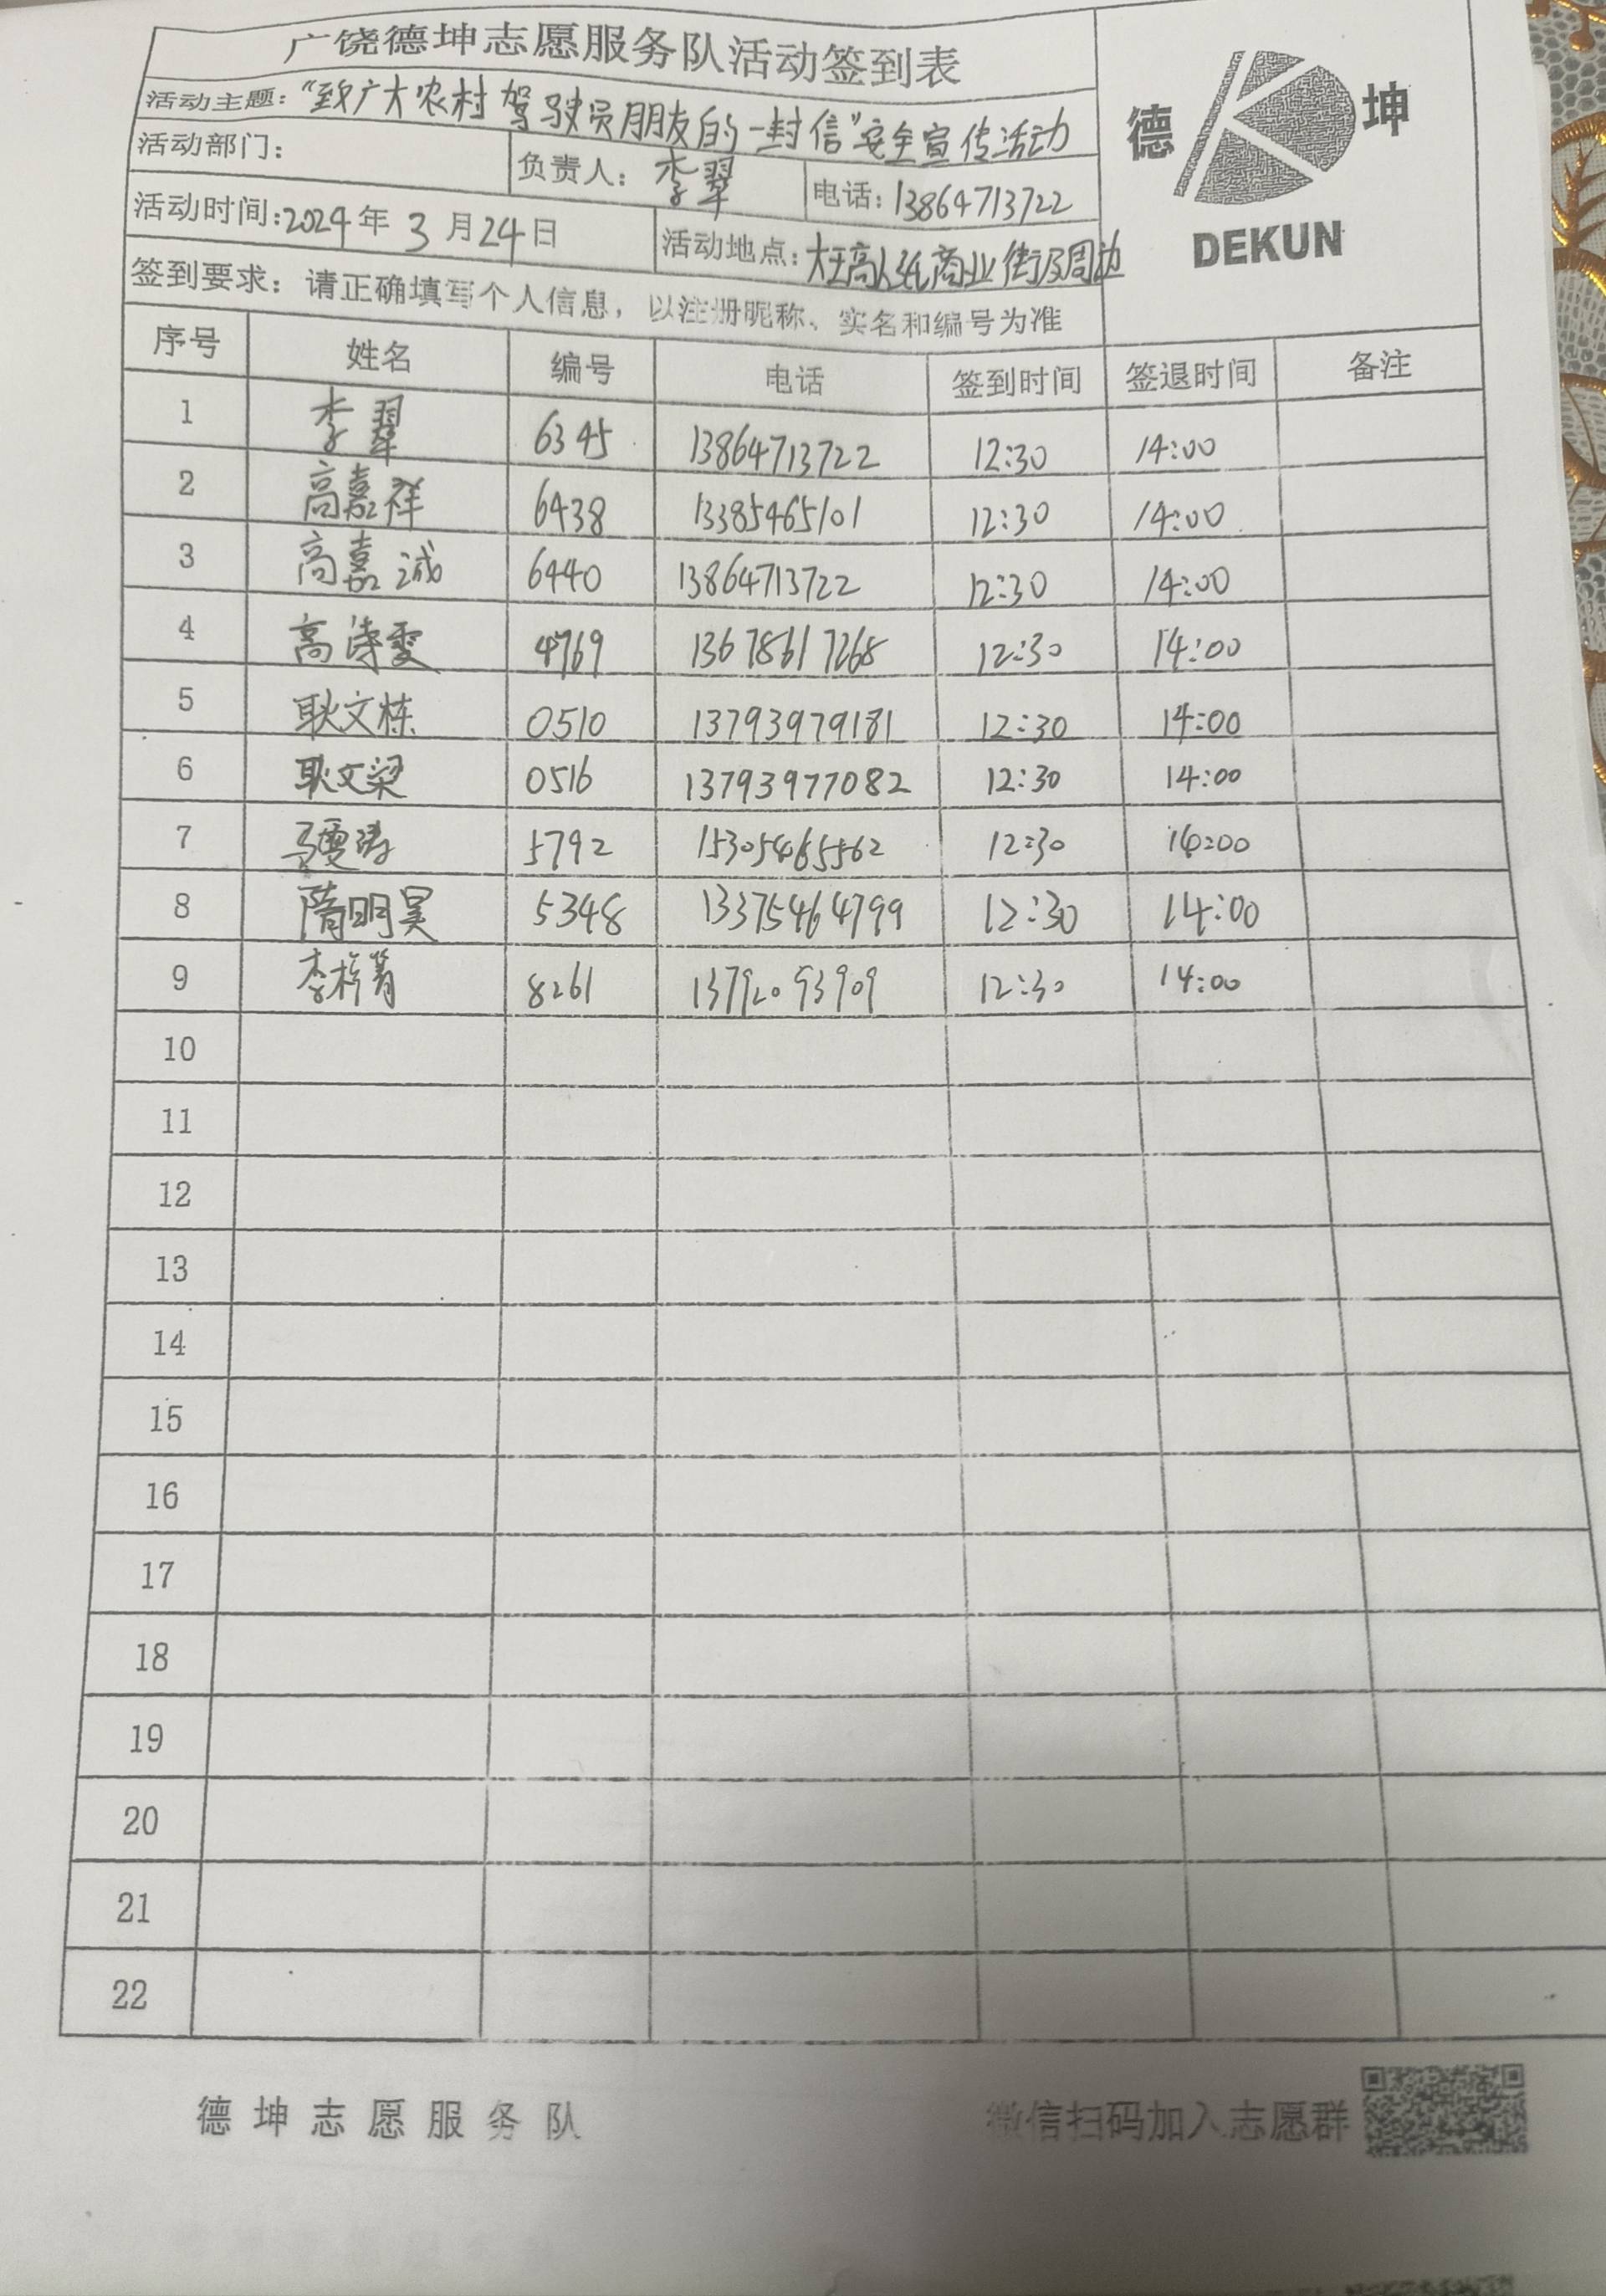 广饶德坤志愿服务队活动签到表
德 坤
DEKUN
活动主题：“致广大农村驾驶员朋友的一封信”安全宣传活动
活动部门： 负责人：李翠 电话：13864713722
活动时间：2024年3月24日 活动地点：商业街及周边
签到要求：请正确填写个人信息，以注册昵称、实名和编号为准
序号 姓名 编号 电话 签到时间 签退时间 备注
1 李翠 6345 13864713722 12:30 14:00
2 高嘉祥 6438 13385465101 12:30 14:00
3 高嘉诚 6440 13864713722 12:30 14:00
4 高诗雯 4769 13678617268 12:30 14:00
5 耿文栋 0510 13793979181 12:30 14:00
6 耿文梁 0516 13793977082 12:30 14:00
7 5792 15305465562 12:30 14:00
8 隋明昊 5348 13375464799 12:30 14:00
9 8261 13792093909 12:30 14:00
10
11
12
13
14
15
16
17
18
19
20
21
22
德坤志愿服务队 微信扫码加入志愿群